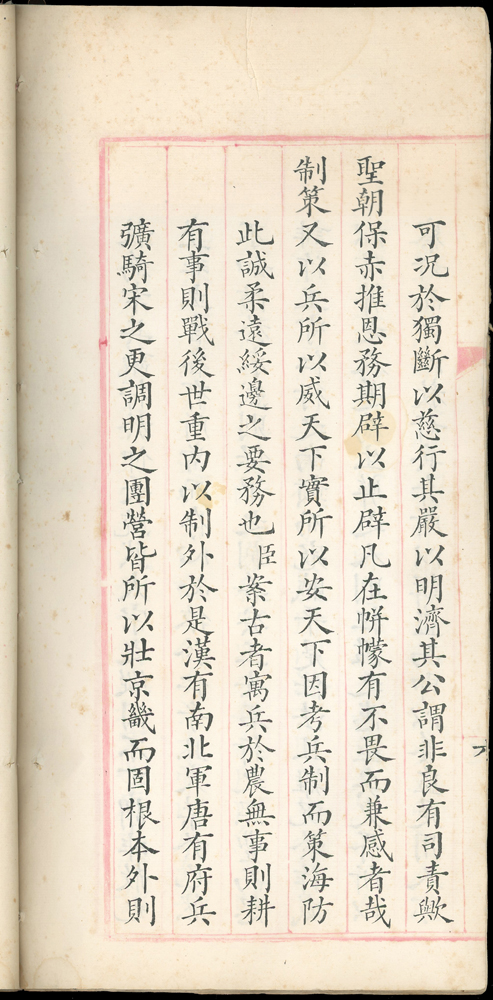 可况於獨斷以慈行其嚴以明濟其公謂非良有司責歟
聖朝保赤推恩務期辟以止辟凡在帡幪有不畏而兼感者哉
制策又以兵所以威天下實所以安天下因考兵制而策海防
此誠柔遠綏邊之要務也臣案古者寓兵於農無事則耕
有事則戰後世重內以制外於是漢有南北軍唐有府兵
彍騎宋之更調明之團營皆所以壯京畿而固根本外則